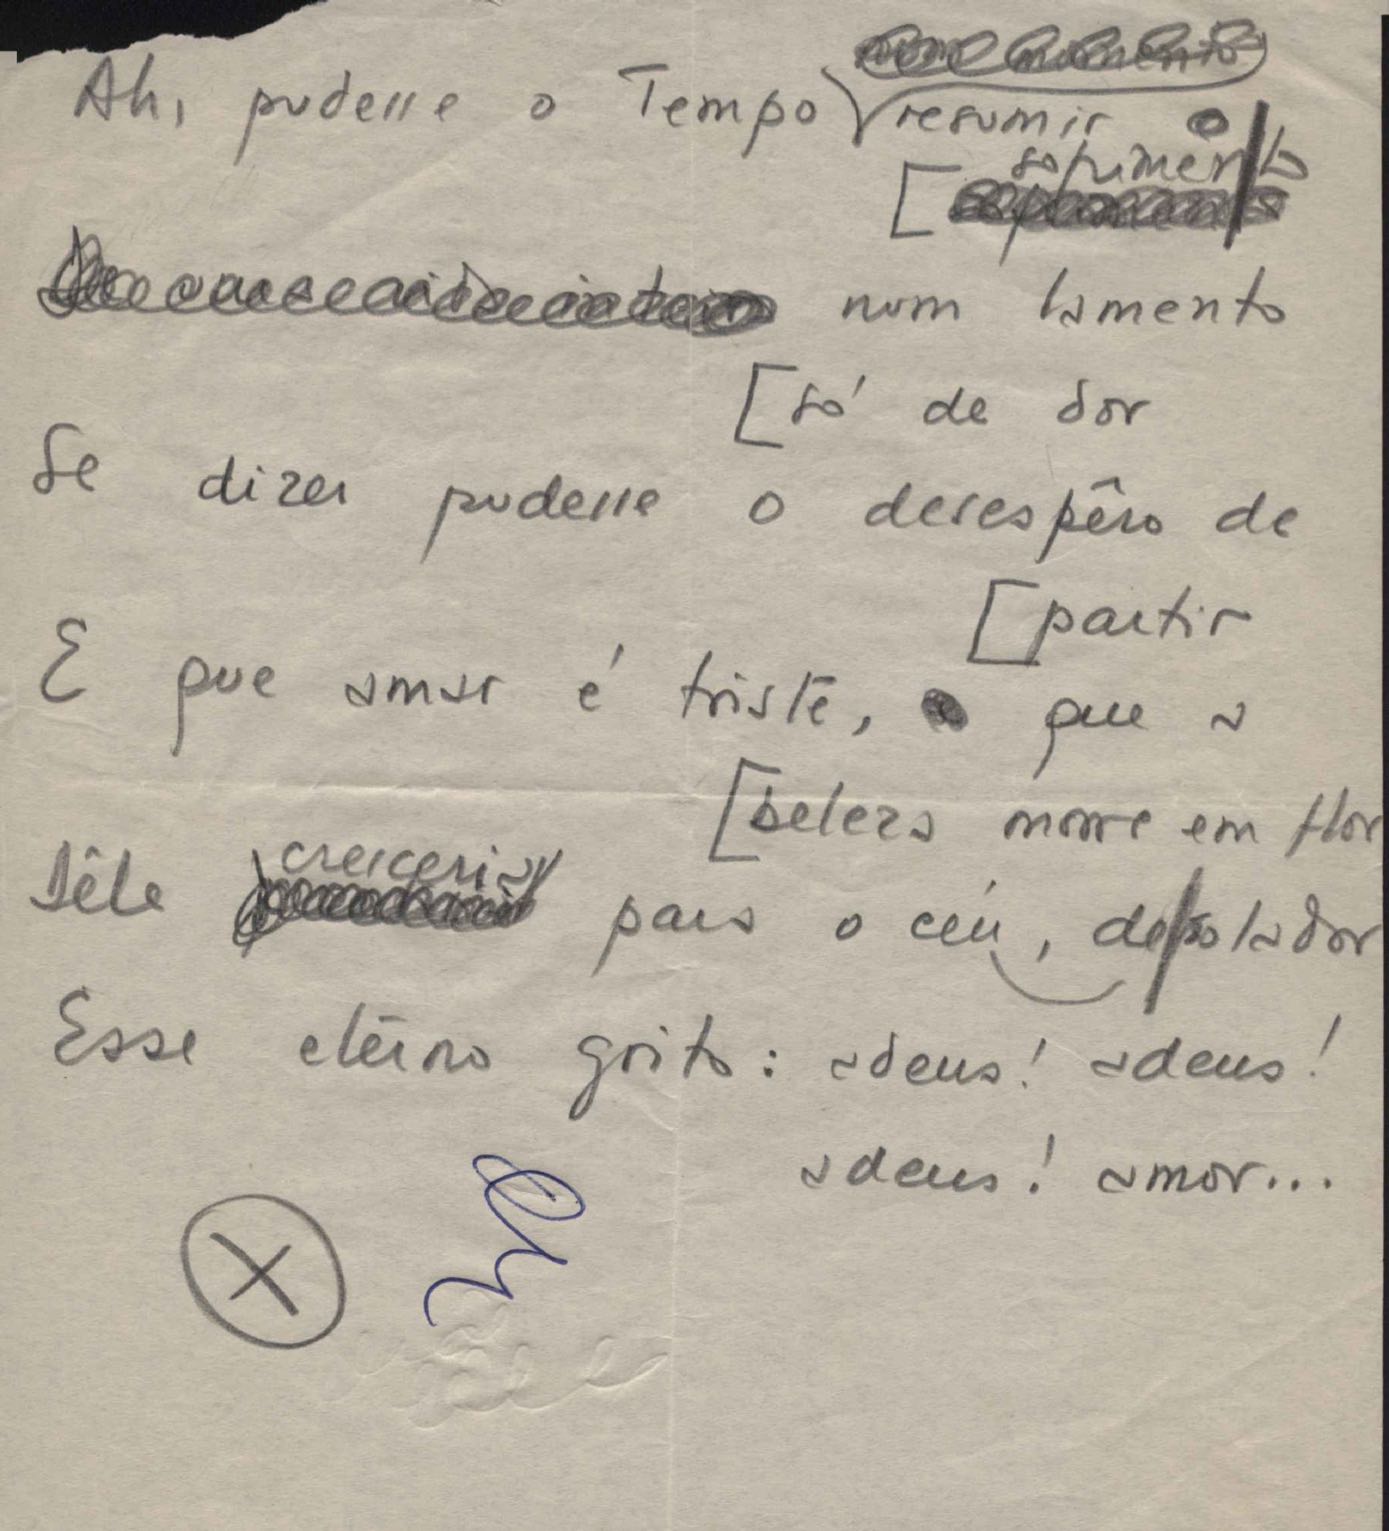 Ah, pudesse o Tempo resumir o
[sofrimento
num lamento
[só de dor
Se dizer pudesse o desespêro de
[partir
E que amar é triste, que a
[beleza morre em flor
Dêle cresceria para o céu, desolador
Esse eterno grito: adeus! adeus!
adeus! amor...
X